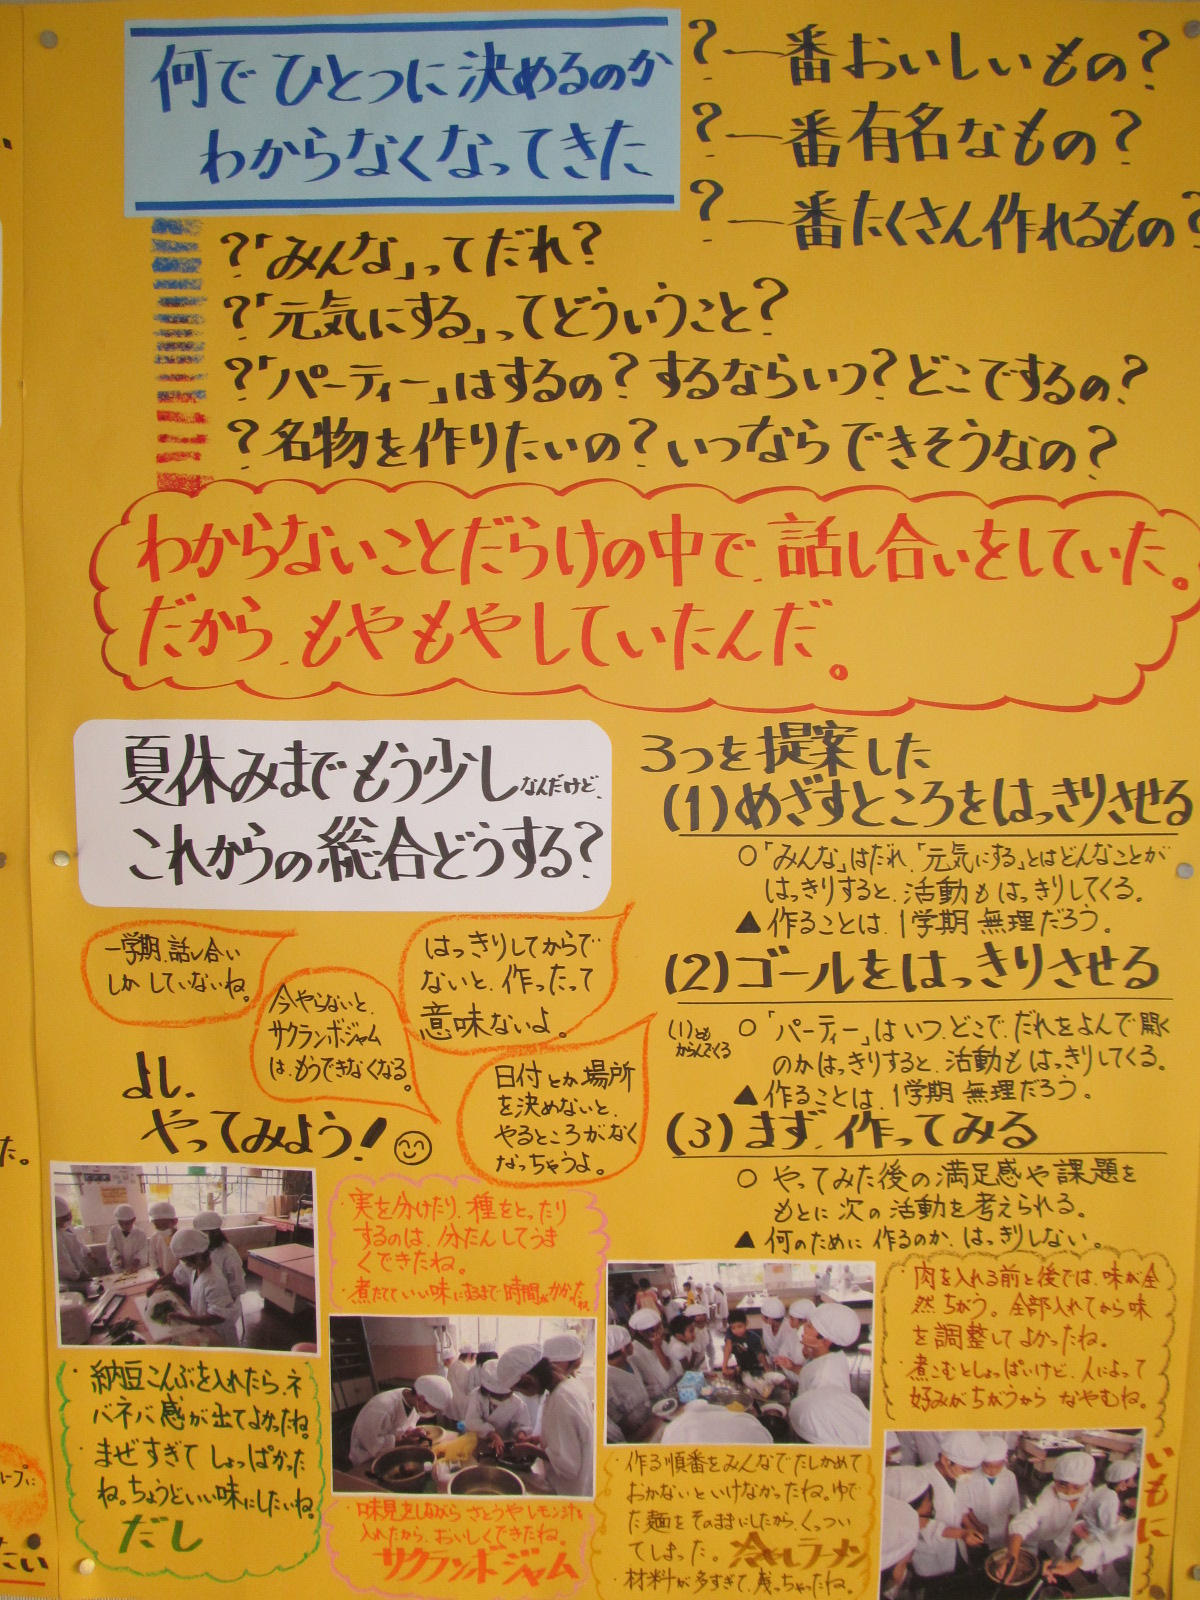 何でひとつに決めるのか
わからなくなってきた
?一番おいしいもの?
?一番有名なもの?
?一番たくさん作れるもの?
?「みんな」ってだれ?
?「元気にする」ってどういうこと?
?「パーティー」はするの?するならいつ?どこでするの?
?名物を作りたいの?いつならできそうなの?
わからないことだらけの中で、話し合いをしていた。
だから、もやもやしていたんだ。
夏休みまでもう少しなんだけど、
これからの総合どうする?
一学期、話し合い
しかしていないね。
今やらないと、
サクランボジャム
は、もうできなくなる。
はっきりしてからで
ないと、作ったって
意味ないよ。
日付とか場所
を決めないと、
やるところがなく
なっちゃうよ。
よし、
やってみよう!
3つを提案した
(1)めざすところをはっきりさせる
○「みんな」はだれ、「元気にする」とはどんなことが
はっきりすると、活動もはっきりしてくる。
▲作ることは、1学期無理だろう。
(2)ゴールをはっきりさせる
(1)とも
からんでくる
○「パーティー」はいつ、どこで、だれをよんで開く
のかはっきりすると、活動もはっきりしてくる。
▲作ることは、1学期無理だろう。
(3)まず、作ってみる
○やってみた後の満足感や課題を
もとに次の活動を考えられる。
▲何のために作るのか、はっきりしない。
・納豆こんぶを入れたら、ネ
バネバ感が出てよかったね。
・まぜすぎてしょっぱかった
ね。ちょうどいい味にしたいね。
だし
・実を分けたり、種をとったり
するのは、分たんしてうま
くできたね。
・煮たてていい味になるまで時間がかかったね
・味見をしながらさとうやレモン汁を
入れたから、おいしくできたね。
サクランボジャム
・作る順番をみんなでたしかめて
おかないといけなかったね。ゆで
た麺をそのままにしたから、くっつい
てしまった。
冷やしラーメン
・材料が多すぎて、残っちゃったね。
・肉を入れる前と後では、味が全
然ちがう。全部入れてから味
を調整してよかったね。
・煮こむとしょっぱいけど、人によって
好みがちがうからなやむね。
いもに
た。
ープに
たい